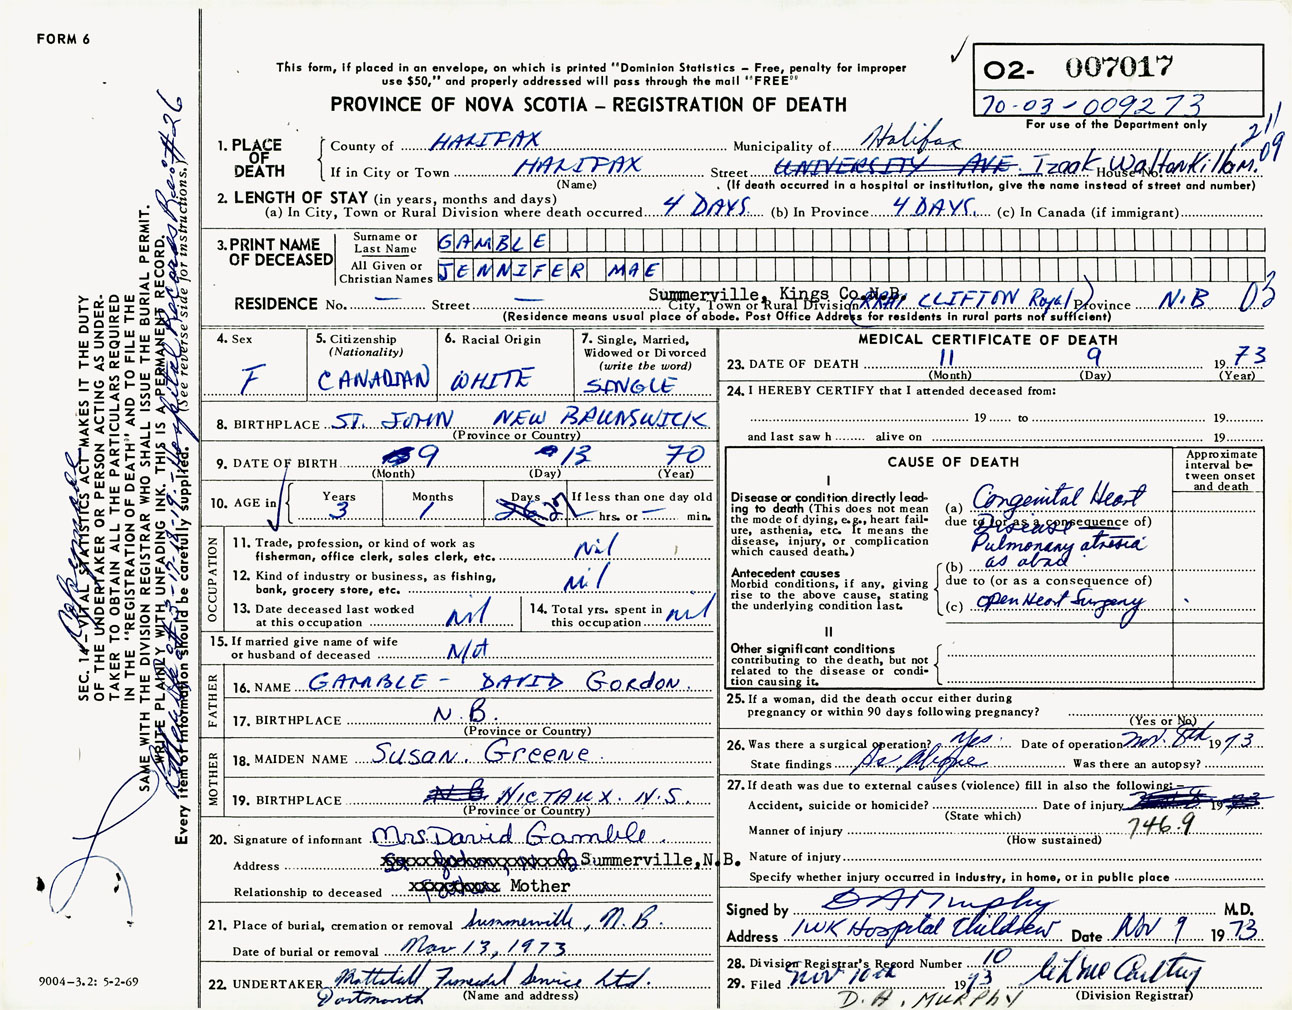 FORM 6
This form, if placed in an envelope, on which is printed "Dominion Statistics – Free, penalty for improper
use $50," and properly addressed will pass through the mail "FREE"
O2- 007017
70-03-009273
For use of the Department only
PROVINCE OF NOVA SCOTIA – REGISTRATION OF DEATH
211
09
1. PLACE OF DEATH
County of HALIFAX Municipality of Halifax
If in City or Town HALIFAX Street UNIVERSITY AVE. Izaak Walton Killam. House No.
(Name) (If death occurred in a hospital or institution, give the name instead of street and number)
2. LENGTH OF STAY (in years, months and days)
(a) In City, Town or Rural Division where death occurred 4 DAYS (b) In Province 4 DAYS. (c) In Canada (if immigrant)
3. PRINT NAME OF DECEASED
Surname or Last Name GAMBLE
All Given or Christian Names JENNIFER MAE
Summerville, Kings Co.N.B.
RESIDENCE No. — Street — City, Town or Rural Division RR#1 CLIFTON Royal) Province N.B 03
(Residence means usual place of abode. Post Office Address for residents in rural parts not sufficient)
4. Sex F
5. Citizenship (Nationality) CANADIAN
6. Racial Origin WHITE
7. Single, Married, Widowed or Divorced (write the word) SINGLE
8. BIRTHPLACE ST. JOHN NEW BRUNSWICK
(Province or Country)
9. DATE OF BIRTH 9 13 70
(Month) (Day) (Year)
10. AGE in Years 3 Months 1 Days 26 27 If less than one day old — hrs. or — min.
OCCUPATION
11. Trade, profession, or kind of work as fisherman, office clerk, sales clerk, etc. Nil
12. Kind of industry or business, as fishing, bank, grocery store, etc. nil
13. Date deceased last worked at this occupation nil
14. Total yrs. spent in this occupation nil
15. If married give name of wife or husband of deceased N/A
FATHER
16. NAME GAMBLE - DAVID GORDON.
17. BIRTHPLACE N.B.
(Province or Country)
MOTHER
18. MAIDEN NAME SUSAN. Greene
19. BIRTHPLACE N B NICTAUX. N.S.
(Province or Country)
20. Signature of informant Mrs David Gamble.
Address Summerville,N.B.
Relationship to deceased Mother
21. Place of burial, cremation or removal Summerville, N.B.
Date of burial or removal Nov 13, 1973
22. UNDERTAKER Mattatall Funeral Service Ltd.
Dartmouth (Name and address)
MEDICAL CERTIFICATE OF DEATH
23. DATE OF DEATH 11 9 1973
(Month) (Day) (Year)
24. I HEREBY CERTIFY that I attended deceased from:
19 to 19
and last saw h alive on 19
CAUSE OF DEATH
Approximate interval between onset and death
I
Disease or condition directly leading to death (This does not mean the mode of dying, e.g., heart failure, asthenia, etc. It means the disease, injury, or complication which caused death.)
(a) Congenital Heart
due to (or as a consequence of)
Disease
Pulmonary atresia
Antecedent causes
Morbid conditions, if any, giving rise to the above cause, stating the underlying condition last.
(b)
due to (or as a consequence of)
(c) open Heart Surgery
II
Other significant conditions
contributing to the death, but not related to the disease or condition causing it.
25. If a woman, did the death occur either during pregnancy or within 90 days following pregnancy?
(Yes or No)
26. Was there a surgical operation? Yes Date of operation Nov. 8th 1973
State findings As Above Was there an autopsy?
27. If death was due to external causes (violence) fill in also the following:
Accident, suicide or homicide? Date of injury 19
(State which)
Manner of injury 746.9
(How sustained)
Nature of injury
Specify whether injury occurred in industry, in home, or in public place
Signed by D A Murphy M.D.
Address IWK Hospital Children Date Nov 9 1973
28. Division Registrar's Record Number 10
29. Filed Nov 10th 1973
D. A. MURPHY (Division Registrar)
SEC. 14 – VITAL STATISTICS ACT MAKES IT THE DUTY
OF THE UNDERTAKER OR PERSON ACTING AS UNDERTAKER
TO OBTAIN ALL THE PARTICULARS REQUIRED
IN THE "REGISTRATION OF DEATH" AND TO FILE THE
SAME WITH THE DIVISION REGISTRAR WHO SHALL ISSUE THE BURIAL PERMIT.
WRITE PLAINLY WITH UNFADING INK. THIS IS A PERMANENT RECORD.
Every item of information should be carefully supplied. (See reverse side for instructions.)
9004-3.2: 5-2-69